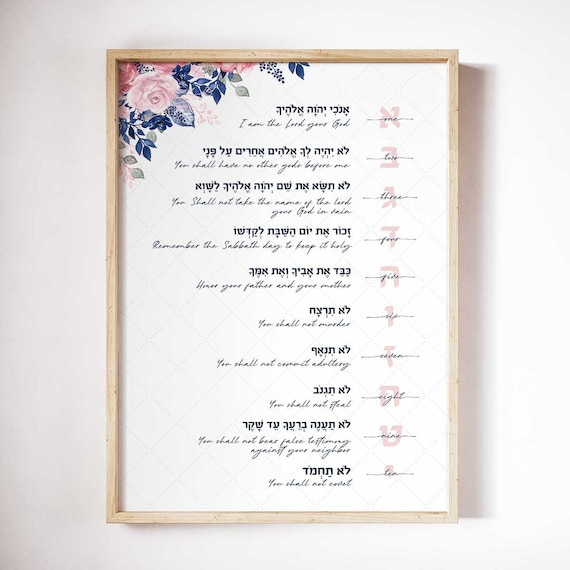 אָנֹכִי יְהֹוָה אֱלֹהֶיךָ
I am the Lord your God
א
one
לֹא יִהְיֶה לְךָ אֱלֹהִים אֲחֵרִים עַל פָּנָי
You shall have no other gods before me
ב
two
לֹא תִשָּׂא אֶת שֵׁם יְהֹוָה אֱלֹהֶיךָ לַשָּׁוְא
You Shall not take the name of the lord
your God in vain
ג
three
זָכוֹר אֶת יוֹם הַשַּׁבָּת לְקַדְּשׁוֹ
Remember the Sabbath day to keep it holy
ד
four
כַּבֵּד אֶת אָבִיךָ וְאֶת אִמֶּךָ
Honor your father and your mother
ה
five
לֹא תִרְצָח
You shall not murder
ו
six
לֹא תִנְאָף
You shall not commit adultery
ז
seven
לֹא תִגְנֹב
You shall not steal
ח
eight
לֹא תַעֲנֶה בְרֵעֲךָ עֵד שָׁקֶר
You shall not bear false testimony
against your neighbor
ט
nine
לֹא תַחְמֹד
You shall not covet
י
ten